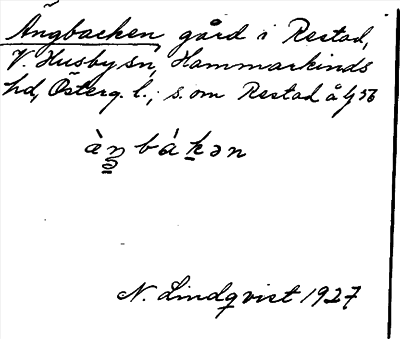 Ängbacken gård i Restad,
V. Husby sn, Hammarkinds
hd, Österg. l.; s. om Restad å Gf 56
àŋbákən
N. Lindqvist 1927